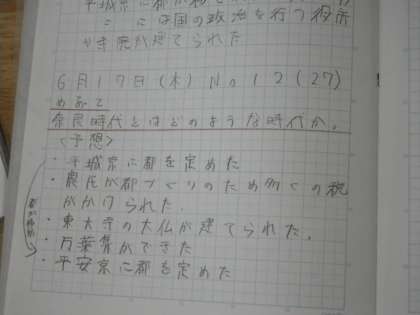 平城京に都が
ここには国の政治を行う役所
や寺院が建てられた
6月19日(木) No 12(27)
めあて
奈良時代とはどのような時代か。
<予想>
・平城京に都を定めた
・農民が都づくりのため多くの税
がかけられた。
・東大寺の大仏が建てられた。
・万葉集ができた
・平安京に都を定めた